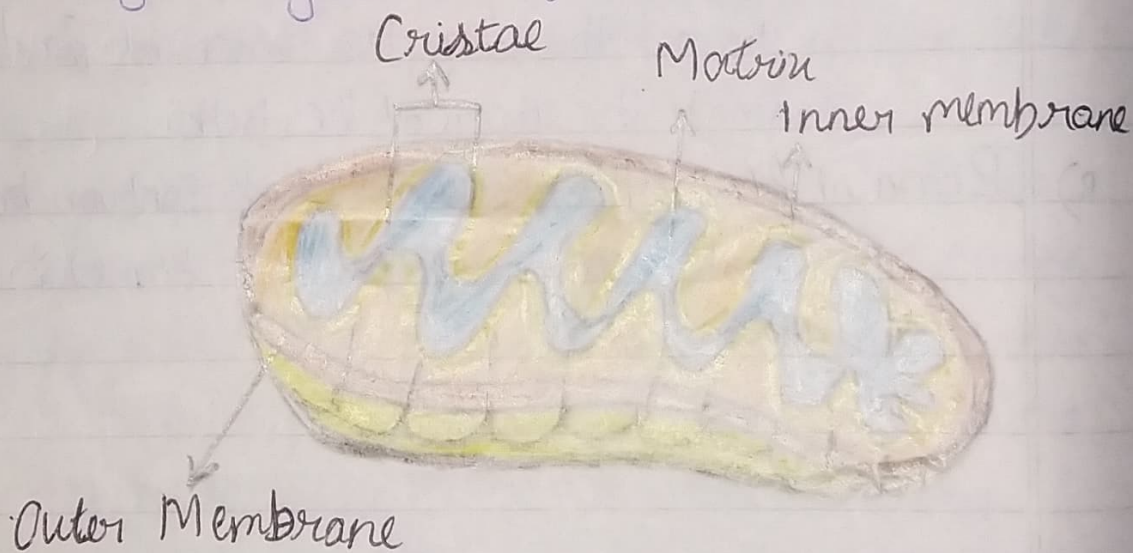 Cristae
Matrix
Inner membrane
Outer Membrane